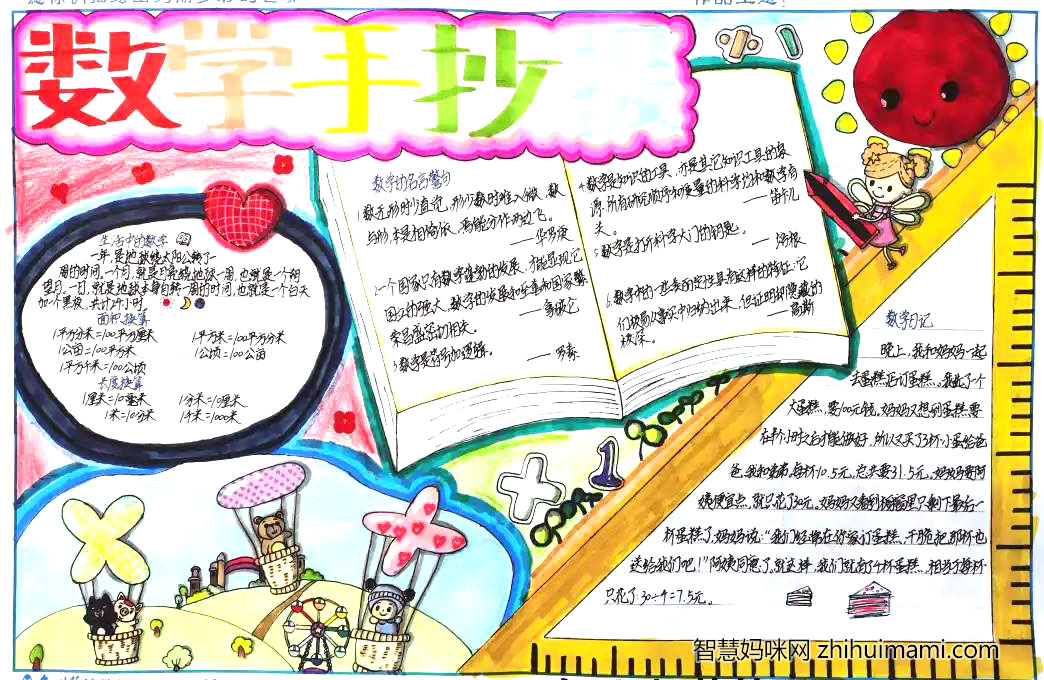 数学手抄报
生活中的数学
一年,是地球绕太阳公转了一
周的时间,一个月,就是月亮绕地球一周,也就是一个朔
望月,一日,就是地球本身自转一周的时间,也就是一个白天
加一个黑夜,共计24小时。
面积换算
1平方分米=100平方厘米
1平方米=100平方分米
1公亩=100平方米
1公顷=100公亩
1平方千米=100公顷
长度换算
1厘米=10毫米
1分米=10厘米
1米=10分米
1千米=1000米
数学的名言警句
1.数无形时少直觉,形少数时难入微,数
与形,本是相倚依,焉能分作两边飞。
——华罗庚
2.一个国家只有数学蓬勃的发展,才能显现它
国力的强大,数学的发展和至善和国家繁
荣昌盛密切相关。
——拿破仑
3.数学是符号加逻辑。
——罗素
4.数学是知识的工具,亦是其它知识工具的泉
源,所有研究顺序和度量的科学均和数学有
关。
——笛卡儿
5.数学是打开科学大门的钥匙。
——培根
6.数学中的一些美丽定理具有这样的特征:它
们极易从事实中归纳出来,但证明却隐藏的
极深。
——高斯
1
数学日记
晚上,我和妈妈一起
去蛋糕店订蛋糕。我选了一个
大蛋糕,要100元钱,妈妈又想到蛋糕要
在半个小时之后才能做好,所以又买了3杯小蛋给爸
爸、我和弟弟,每杯10.5元,总共要31.5元,妈妈要阿
姨便宜点,就只花了30元,妈妈又看到橱窗里只剩下最后一
杯蛋糕了,妈妈说:“我们经常在你家订蛋糕,干脆把那杯也
送给我们吧!”阿姨同意了,就这样,我们就有了4杯蛋糕,相当于每杯
只花了30÷4=7.5元。
智慧妈咪网 zhihuimami.com